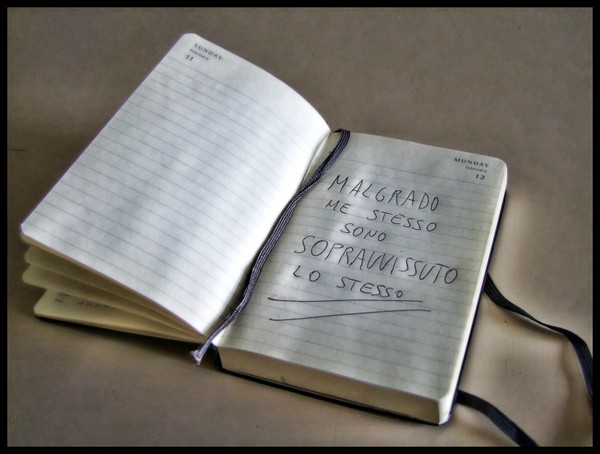 SUNDAY
february
11
MONDAY
february
12
MALGRADO
ME STESSO
SONO
SOPRAVVISSUTO
LO STESSO